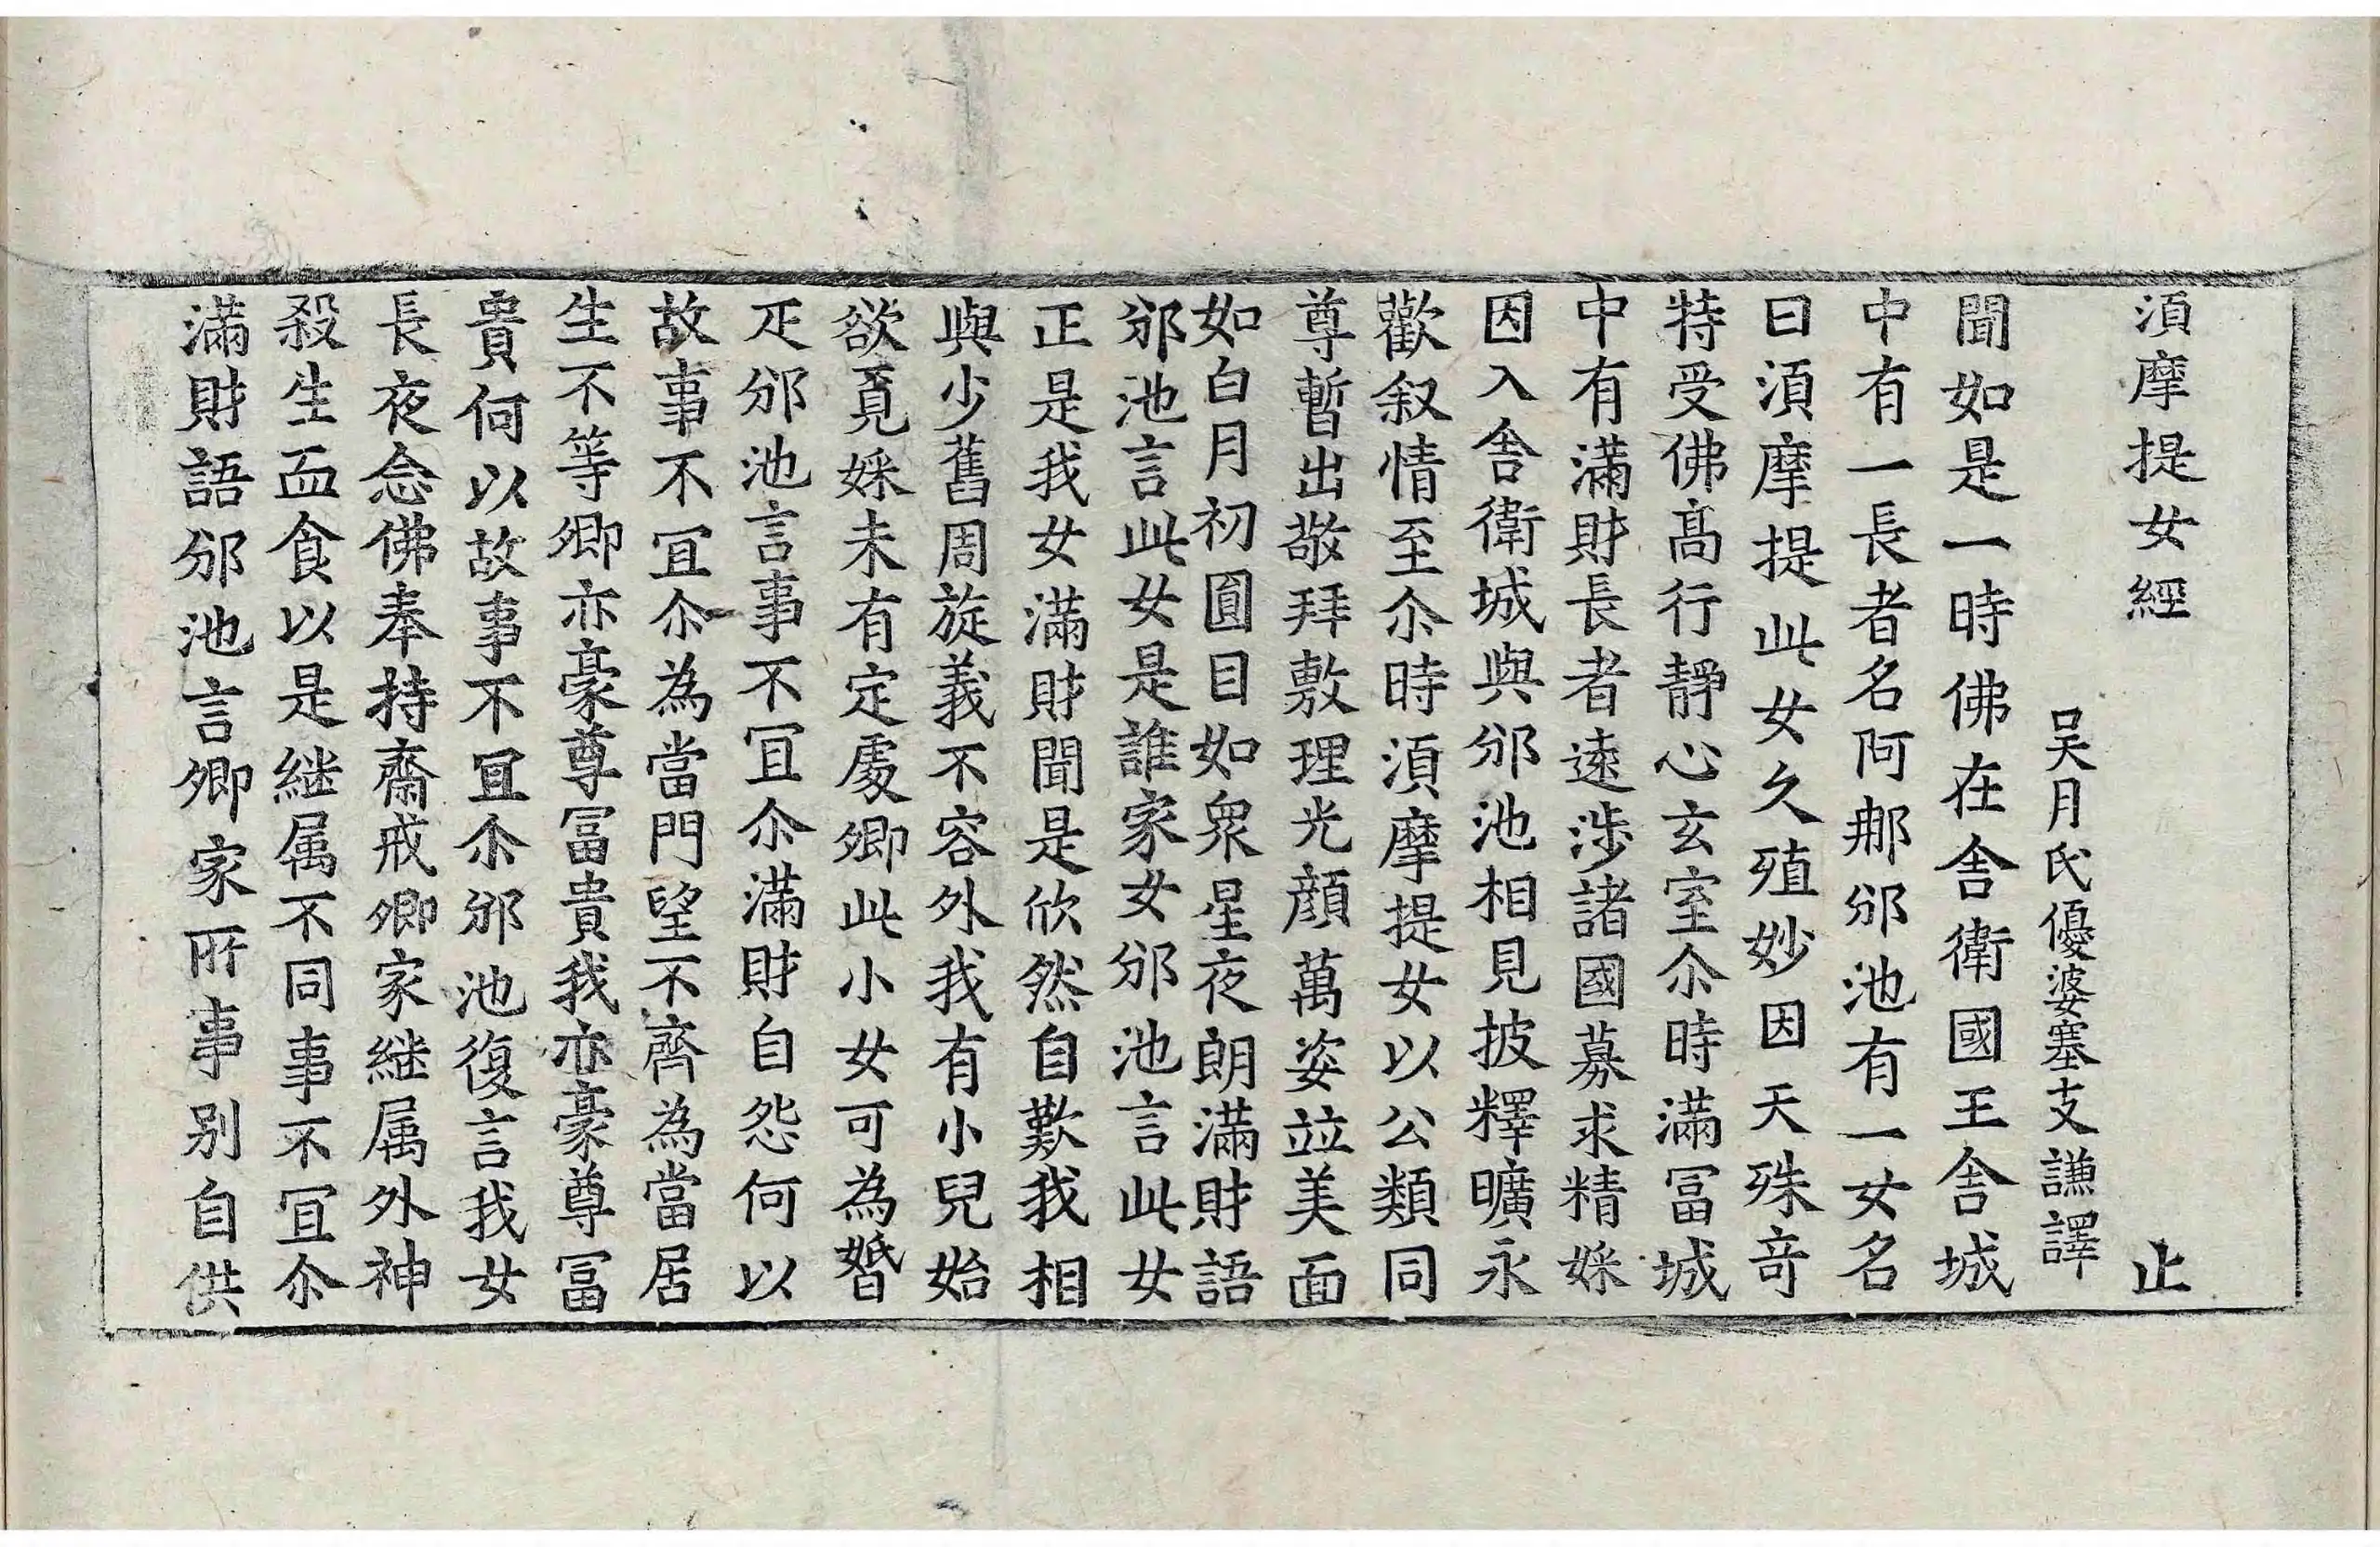 湏摩提女經 止
吴月氏優婆塞支謙譯
聞如是一時佛在舎衛國王舎城
中有一長者名阿𨚗邠池有一女名
曰湏摩提此女久殖妙因天殊竒
特受佛髙行靜心玄室尒時滿冨城
中有滿財長者逺涉諸國募求精婇
因入舎衛城與邠池相見披釋曠永
歡叙情至尒時湏摩提女以公類同
尊暫出敬拜敷理光顔萬姿竝美面
如白月初圓目如衆星夜朗滿財語
邠池言此女是誰家女邠池言此女
正是我女滿財聞是欣然自歎我相
與少舊周旋義不容外我有小兒始
欲覔婇未有定處卿此小女可為婚
疋邠池言事不冝尒滿財自怨何以
故事不冝尒為當門望不齊為當居
生不等卿亦豪尊冨貴我亦豪尊冨
貴何以故事不冝尒邠池復言我女
長夜念佛奉持齋戒卿家継属外神
殺生血食以是継属不同事不冝尒
滿財語邠池言卿家所事别自供